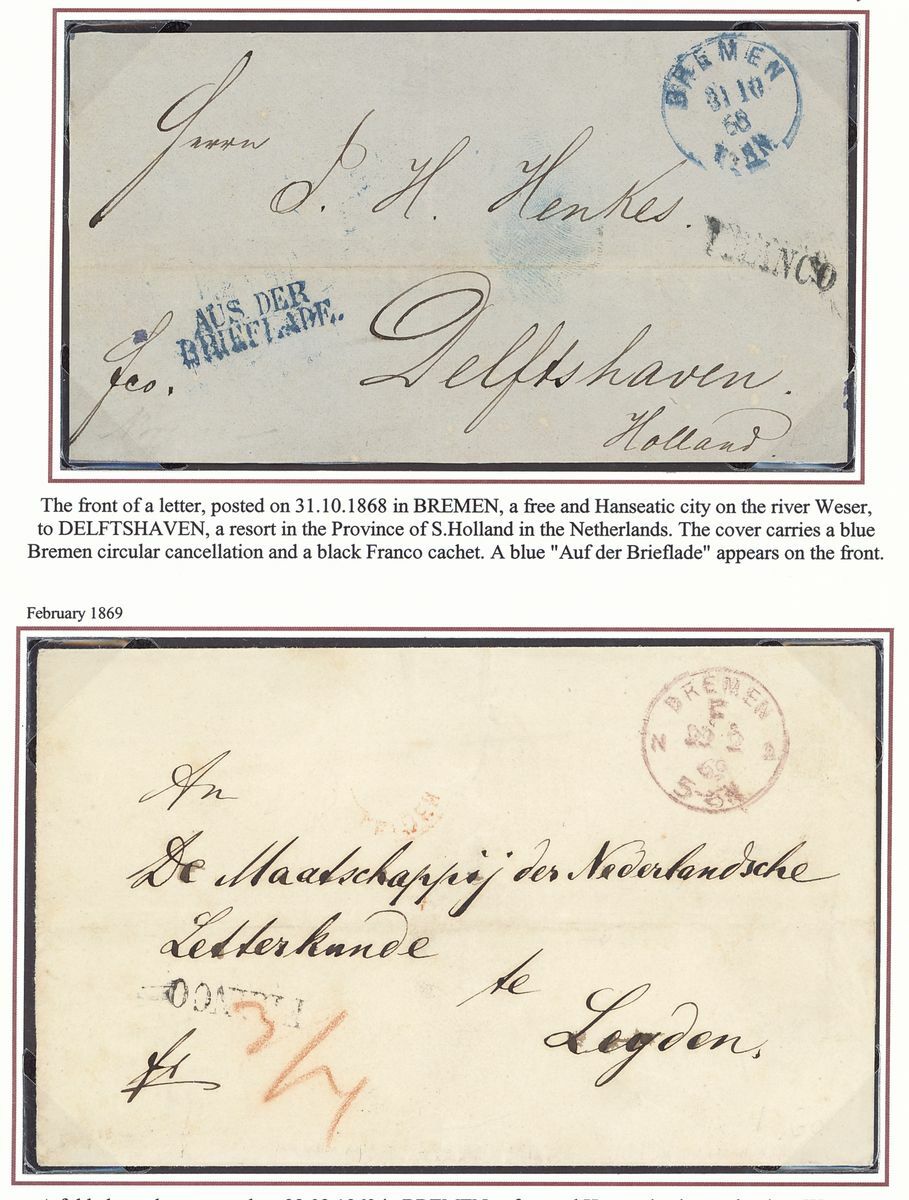 BREMEN
31 10
68
Herrn
J. H. Henkes.
FRANCO
AUS DER
BRIEFLADE.
fco.
Delftshaven.
Holland.
The front of a letter, posted on 31.10.1868 in BREMEN, a free and Hanseatic city on the river Weser,
to DELFTSHAVEN, a resort in the Province of S.Holland in the Netherlands. The cover carries a blue
Bremen circular cancellation and a black Franco cachet. A blue "Auf der Brieflade" appears on the front.
February 1869
BREMEN
F
69
5-6N
An
De Maatschappij der Nederlandsche
Letterkunde
te
FRANCO
3/4
Leyden.